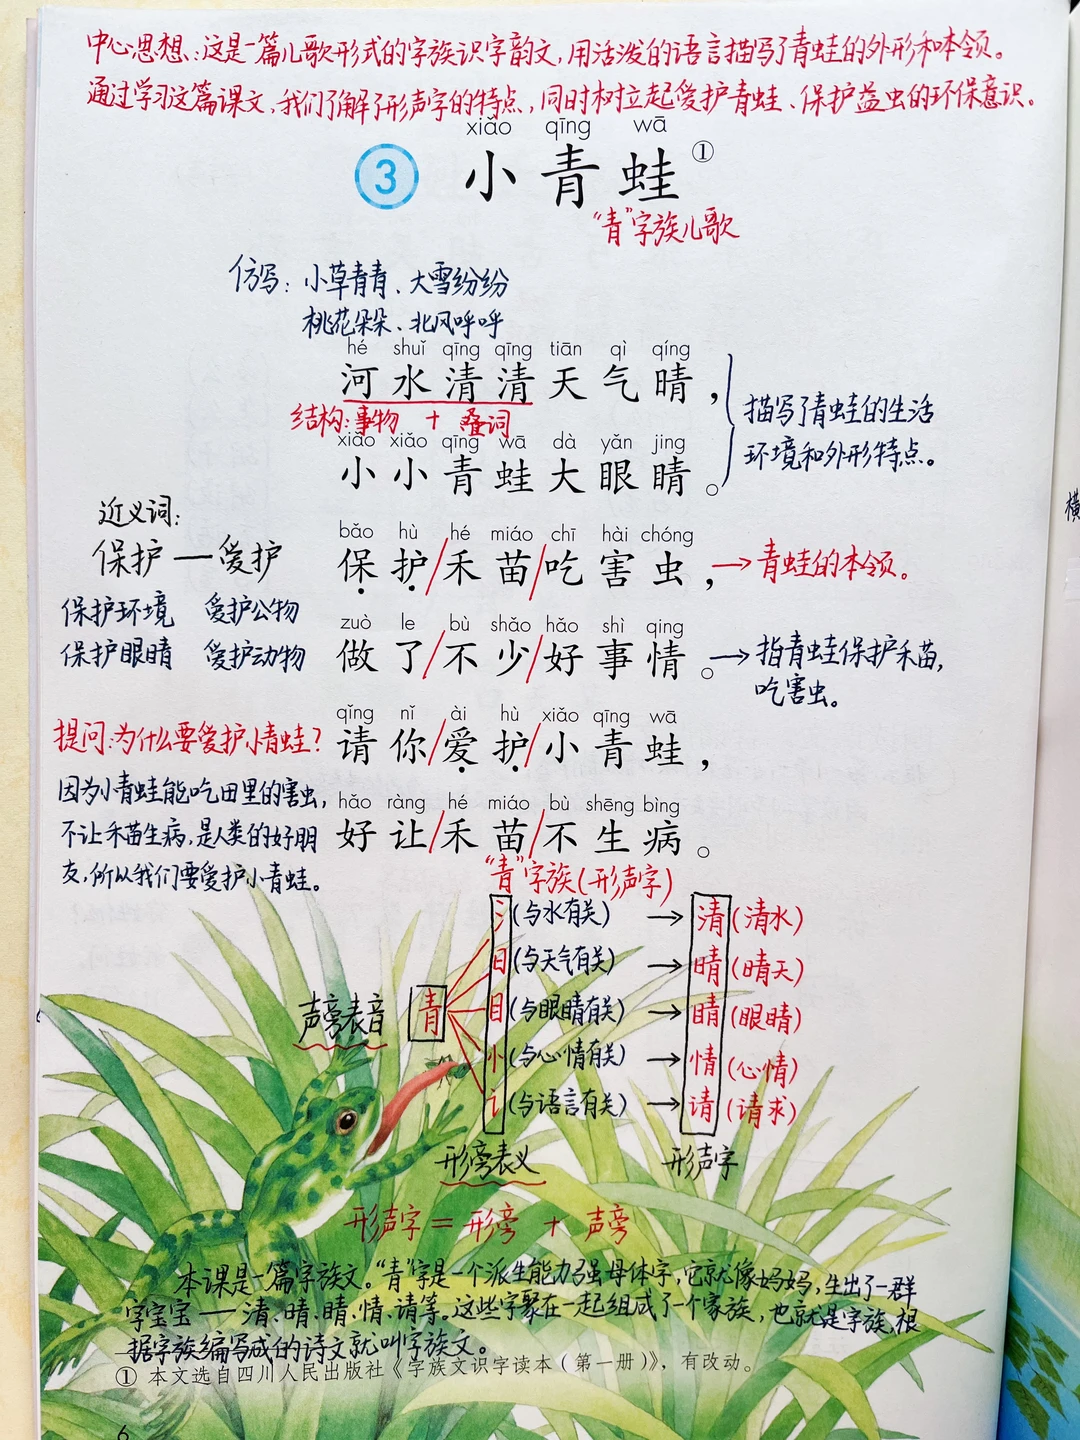 中心思想:这是一篇儿歌形式的字族识字韵文,用活泼的语言描写了青蛙的外形和本领。
通过学习这篇课文,我们了解了形声字的特点,同时树立起爱护青蛙、保护益虫的环保意识。
xiǎo qīng wā
3 小青蛙①
“青”字族儿歌
仿写:小草青青、大雪纷纷
桃花朵朵、北风呼呼
hé shuǐ qīng qīng tiān qì qíng
河水清清天气晴,
结构:事物 + 叠词
描写了青蛙的生活
环境和外形特点。
xiǎo xiǎo qīng wā dà yǎn jing
小小青蛙大眼睛。
近义词:
保护—爱护
保护环境 爱护公物
保护眼睛 爱护动物
bǎo hù hé miáo chī hài chóng
保护/禾苗/吃害虫,→青蛙的本领。
zuò le bù shǎo hǎo shì qing
做了/不少/好事情。→指青蛙保护禾苗,
吃害虫。
提问:为什么要爱护小青蛙?
因为小青蛙能吃田里的害虫,
不让禾苗生病,是人类的好朋
友,所以我们要爱护小青蛙。
qǐng nǐ ài hù xiǎo qīng wā
请你/爱护/小青蛙,
hǎo ràng hé miáo bù shēng bìng
好让/禾苗/不生病。
“青”字族(形声字)
氵(与水有关)→清(清水)
日(与天气有关)→晴(晴天)
声旁表音 青 目(与眼睛有关)→睛(眼睛)
忄(与心情有关)→情(心情)
讠(与语言有关)→请(请求)
形旁表义 形声字
形声字=形旁+声旁
本课是一篇字族文。“青”字是一个派生能力强母体字,它就像妈妈,生出了一群
字宝宝——清、晴、睛、情、请等。这些字聚在一起组成了一个家族,也就是字族,根
据字族编写成的诗文就叫字族文。
① 本文选自四川人民出版社《字族文识字读本(第一册)》,有改动。
6
横